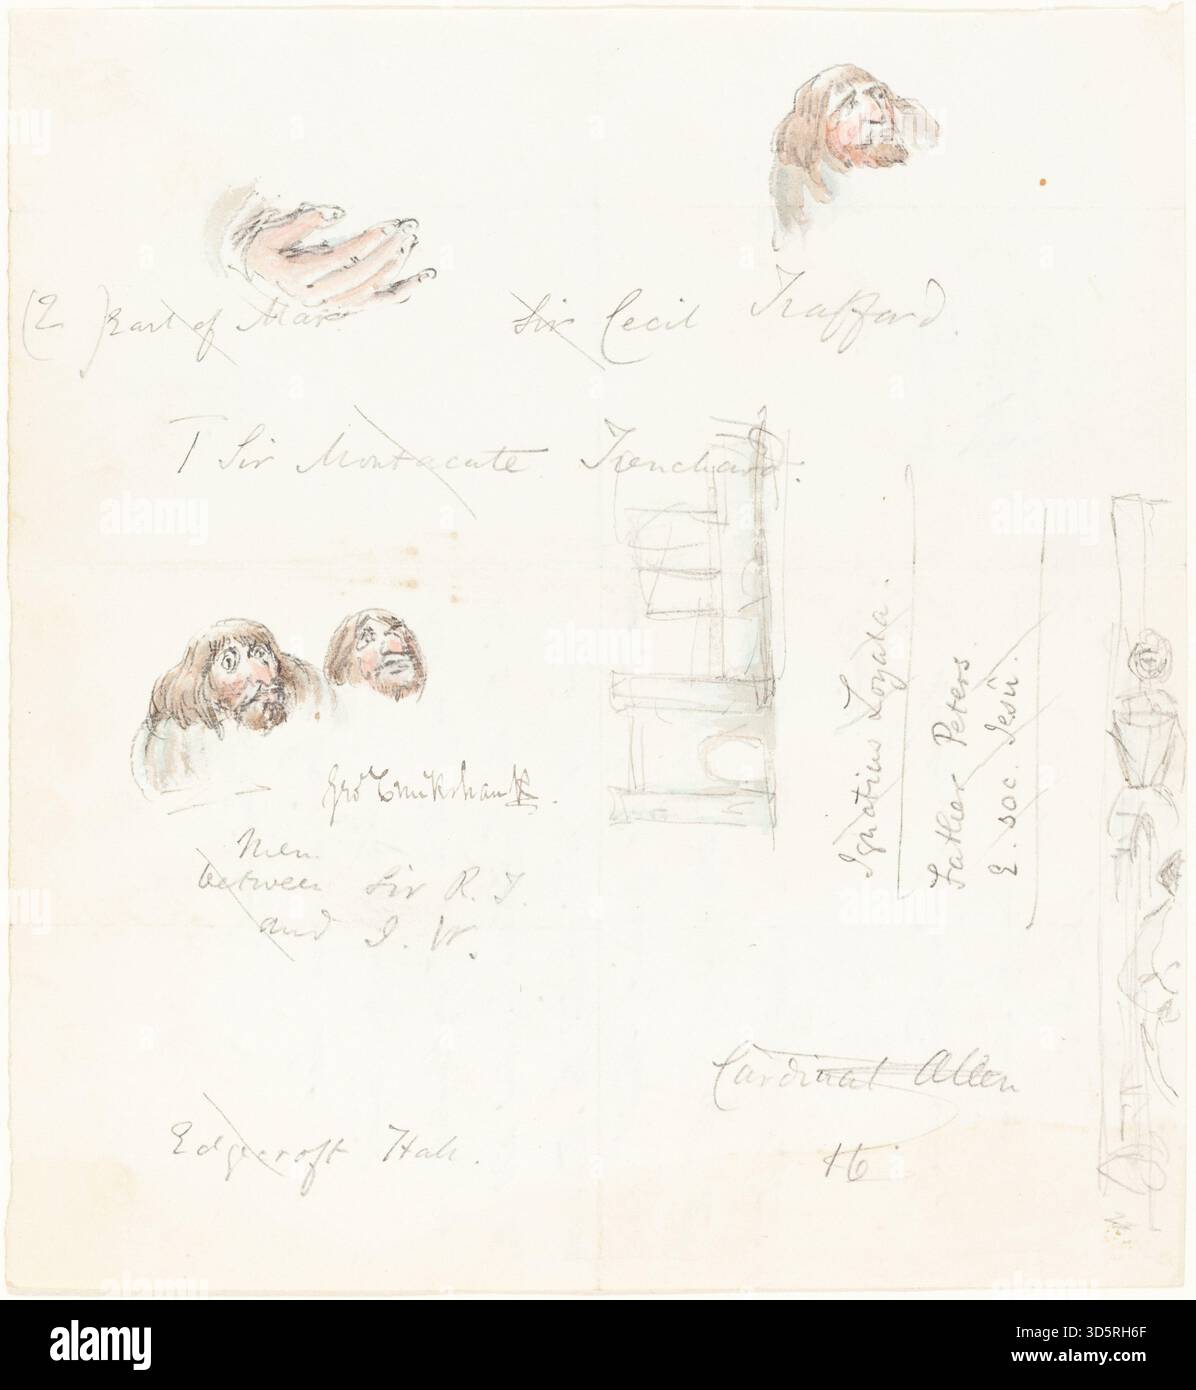 (E ) Earl of Mar
Sir Cecil Trafford.
T Sir Montacute Trenchard.
Ignatius Loyala.
Father Peters.
E. soc. Jesu.
Geo Cruikshank.
Men
between Sir R. T.
and J. W.
Cardinal Allen
16
Edgcroft Hall.
alamy
Image ID: 3D5RH6F
www.alamy.com